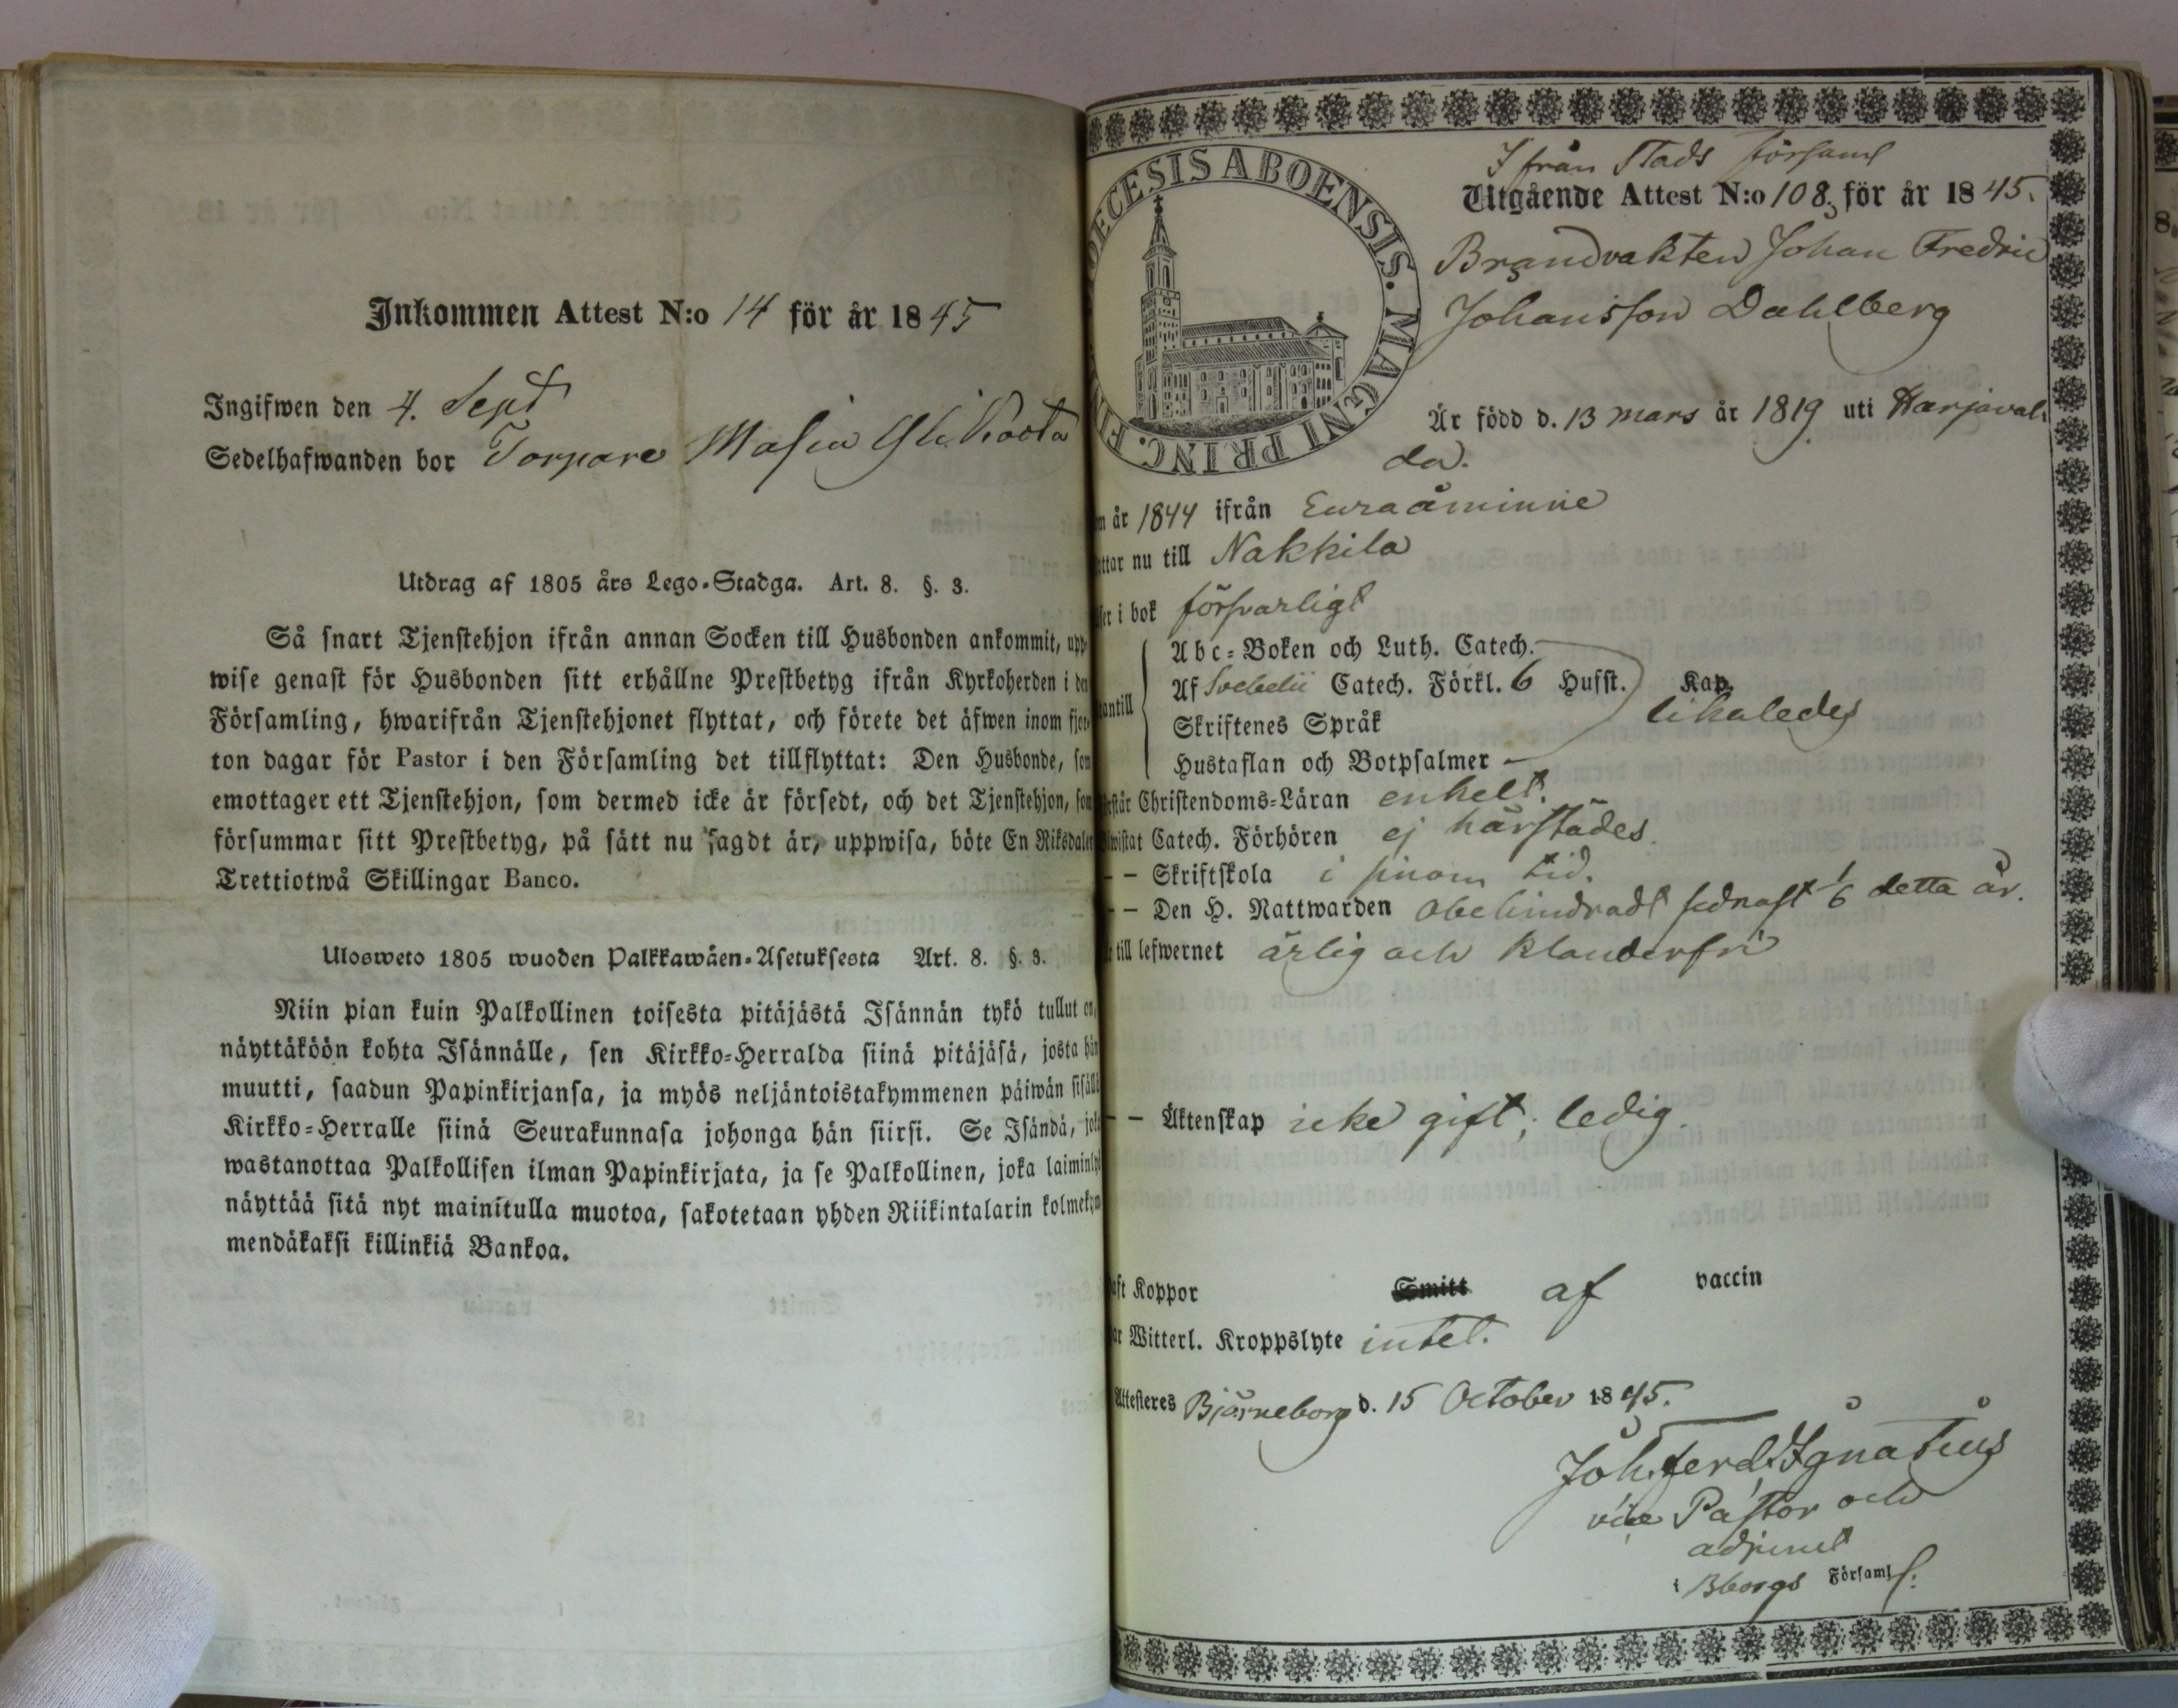 Inkommen Attest N:o 14 för år 1845
Ingifwen den 4. Sept
Sedelhafwanden bor Torpare
Utdrag af 1805 års Lego-Stadga. Art. 8. §. 3.
Så snart Tjenstehjon ifrån annan Socken till Husbonden ankommit, upp-
wise genast för Husbonden sitt erhållne Prestbetyg ifrån Kyrkoherden i den
Församling, hwarifrån Tjenstehjonet flyttat, och förete det äfwen inom fjor-
ton dagar för Pastor i den Församling det tillflyttat: Den Husbonde, som
emottager ett Tjenstehjon, som dermed icke är försedt, och det Tjenstehjon, som
försummar sitt Prestbetyg, på sätt nu sagdt är, uppwisa, böte En Riksdaler
Trettiotwå Skillingar Banco.
Ulosweto 1805 wuoden Palkkawäen-Asetuksesta Art. 8. §. 3.
Niin pian kuin Palkollinen toisesta pitäjästä Isännän tykö tullut on,
näyttäköön kohta Isännälle, sen Kirkko-Herralda siinä pitäjäsä, josta hän
muutti, saadun Papinkirjansa, ja myös neljäntoistakymmenen päiwän sisällä
Kirkko-Herralle siinä Seurakunnasa johonga hän siirsi. Se Isändä, joka
wastanottaa Palkollisen ilman Papinkirjata, ja se Palkollinen, joka laiminly
näyttää sitä nyt mainitulla muotoa, sakotetaan yhden Riikintalarin kolmekym
mendäkaksi killinkiä Bankoa.
DECESIS ABOENSIS. MAGNI PRINC. FIN
Ifrån Stads församl
Utgående Attest N:o 108. för år 1845.
Brandvakten Johan Fredric
Johansson Dahlberg
Är född d. 13 mars år 1819 uti Harjaval-
da.
m år 1844 ifrån Euraåminne
ttar nu till Nakkila
ser i bok försvarligt
Abc-Boken och Luth. Catech.
Af Svebelii Catech. Förkl. 6 Husst. Kap.
antill likaledes
Skriftenes Språk
Hustaflan och Botpsalmer
rstår Christendoms-Läran enkelt.
iwistat Catech. Förhören ej härstädes.
- - Skriftskola i sinom tid.
- - Den H. Nattwarden obehindradt sednast 1/6 detta år.
till lefwernet ärlig och klanderfri
- - Äktenskap icke gift, ledig.
aft Koppor Smitt af vaccin
ar Witterl. Kroppslyte intet.
Attesteres Björneborg d. 15 October 1845.
Joh. Ferd. Ignatius
vice Pastor och
adjunct
i Bborgs Församl.